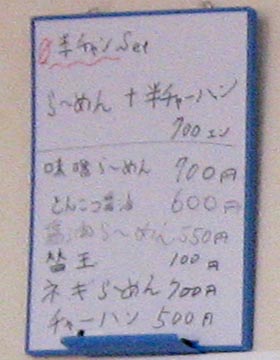 半チャンSet
らーめん + 半チャーハン
700エン
味噌らーめん 700円
とんこつ醤油 600円
醤油らーめん 550円
替玉 100円
ネギらーめん 700円
チャーハン 500円